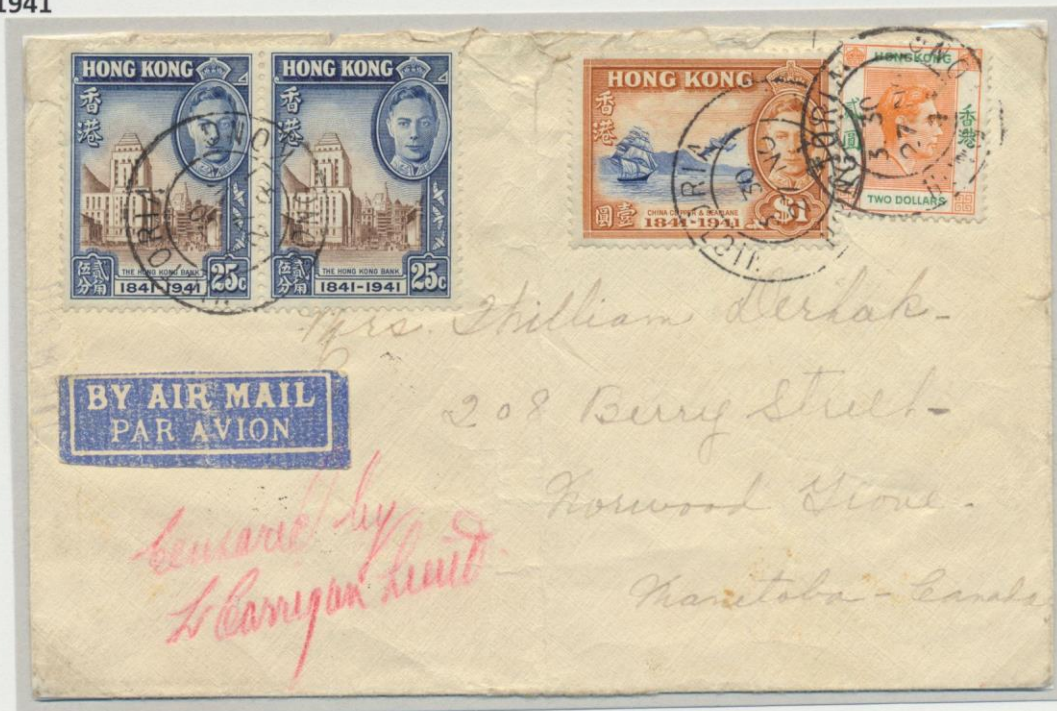 1941
HONG KONG
香港
THE HONG KONG BANK
伍分 貳角
1841-1941
25c
HONG KONG
香港
THE HONG KONG BANK
伍分 貳角
1841-1941
25c
HONG KONG
香港
CHINA CLIPPER & SEAPLANE
壹圓
1841-1941
$1
HONG KONG
貳圓
香港
TWO DOLLARS
VICTORIA
HONG KONG
VICTORIA
3 30
HONG KONG
VICTORIA
3 30
27
Mrs. William Derhak-
208 Berry Street-
Norwood Grove.
Manitoba - Canada
BY AIR MAIL
PAR AVION
Censored by
Carrigan Lieut